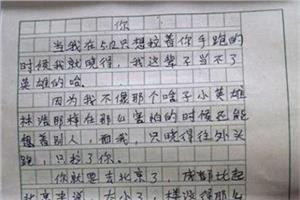 你
当我在512只想拉着你手跑的
时候我就晓得，我这辈子当不了
英雄的哈。
因为我不像那个啥子小英雄
林浩那样在那么害怕的时候还能
想着别人，而我，只晓得往外头
跑，只拉了你。
你就要去北京了，成都比起
北京来说，太小了，楼没得那